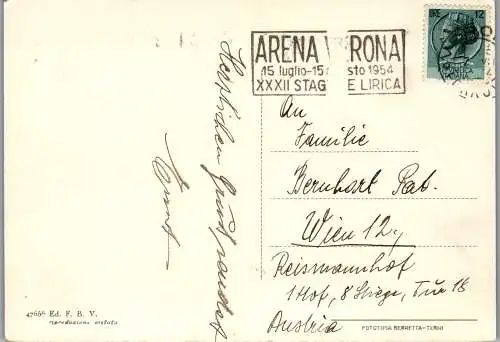 ARENA VERONA
15 luglio-15 agosto 1954
XXXII STAG E LIRICA
LIRE 12
Herzlichen Gruß sendet
Ernst
An
Familie
Bernhart Rab.
Wien 12,
Reismannhof
1 Hof, 8 Stiege, Tür 18
Austria
47658 Ed. F. B. V.
riproduzione vietata
FOTOTOSA BERRETTA-TERNI